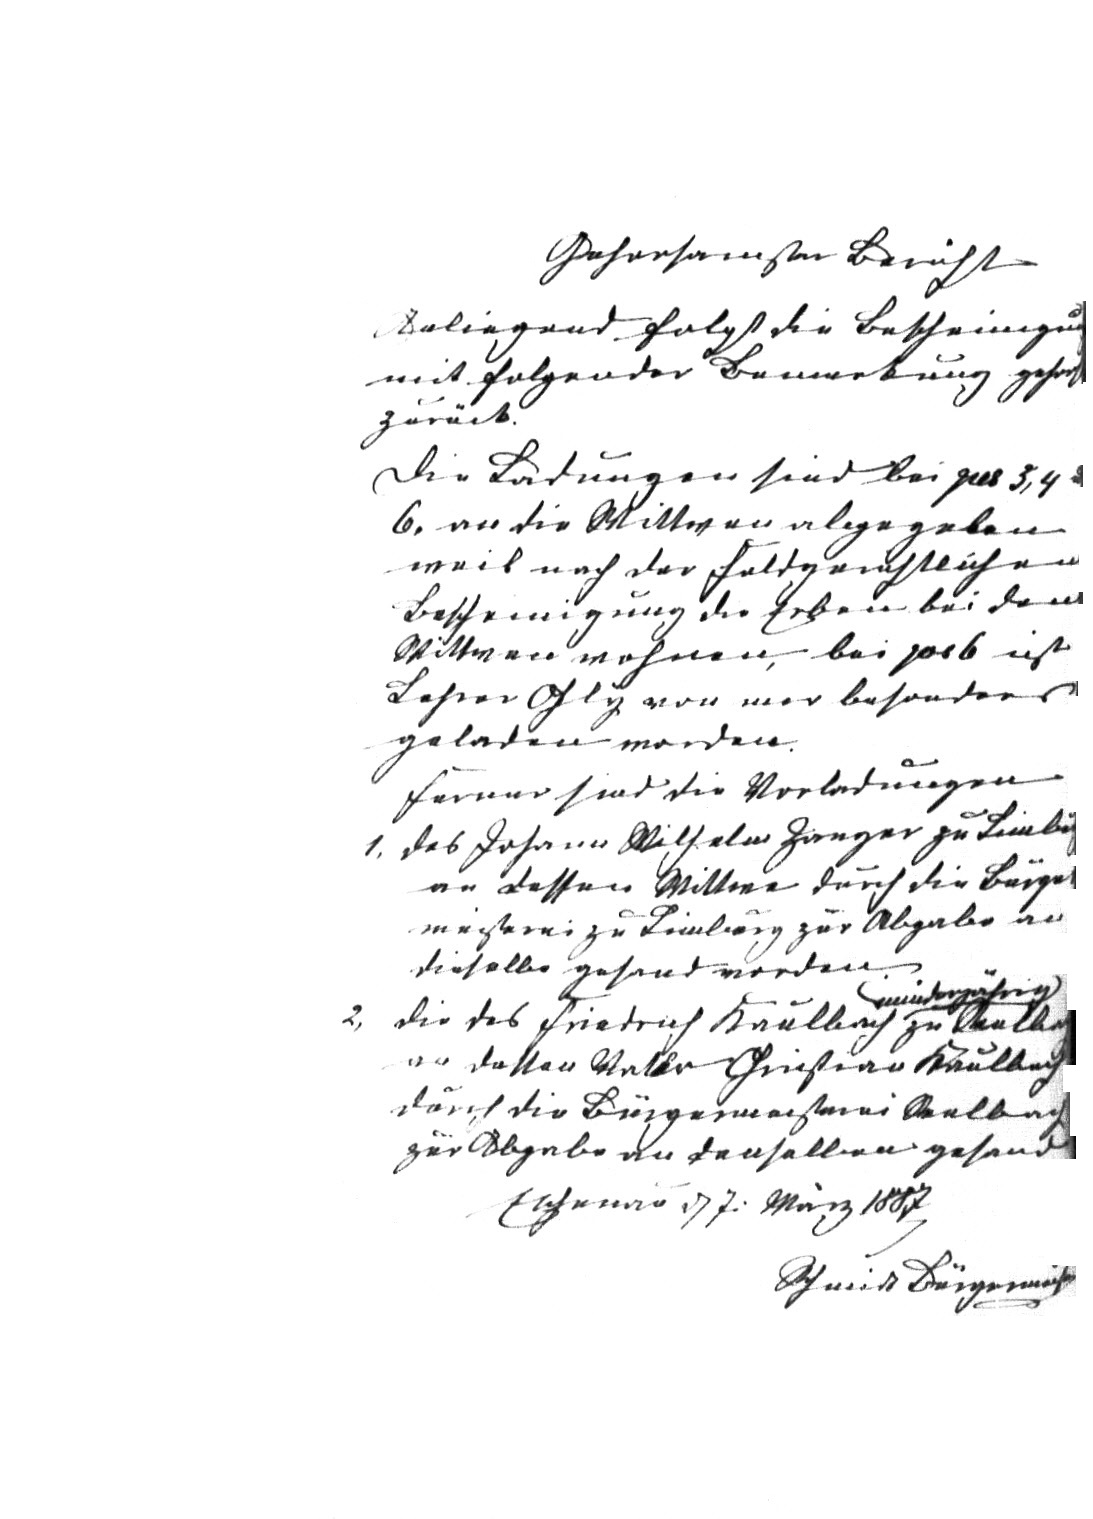 Gehorsamster Bericht
Anliegend folgt die Bescheinigung
mit folgender Bemerkung gehors
zurück.
Die Ladungen sind bei pos 3, 4 &
6. an die Wittwen abgegeben
weil nach der feldgerichtlichen
Bescheinigung die Erben bei den
Wittwen wohnen, bei pos 6 ist
Lehrer Ohly von mir besonders
geladen worden.
Ferner sind die Vorladungen
1, des Johann Wilhelm Zanger zu Limburg
an dessen Wittwe durch die Bürger
meisterei zu Limburg zur Abgabe an
dieselbe gesand worden
(minderjährig)
2, die des Friedrich Kaulbach zu Seelbach
an dessen Vater Christian Kaulbach
durch die Bürgermeisterei Seelbach
zur Abgabe an denselben gesand
Eschenau d 7. März 1887
Schmidt Bürgermeister